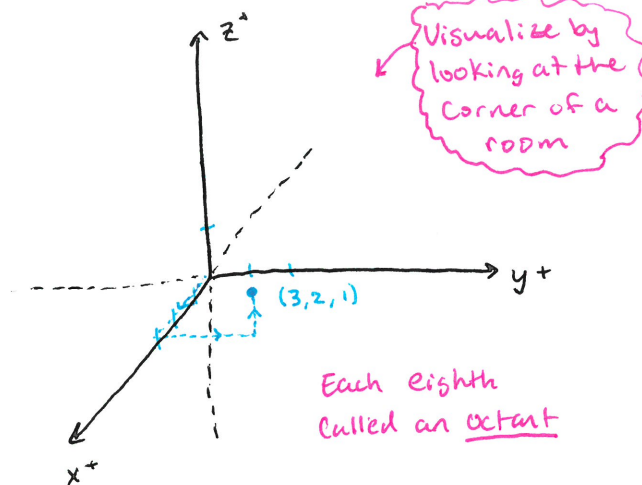 z+
Visualize by
looking at the
corner of a
room
y+
(3,2,1)
Each eighth
called an octant
x+